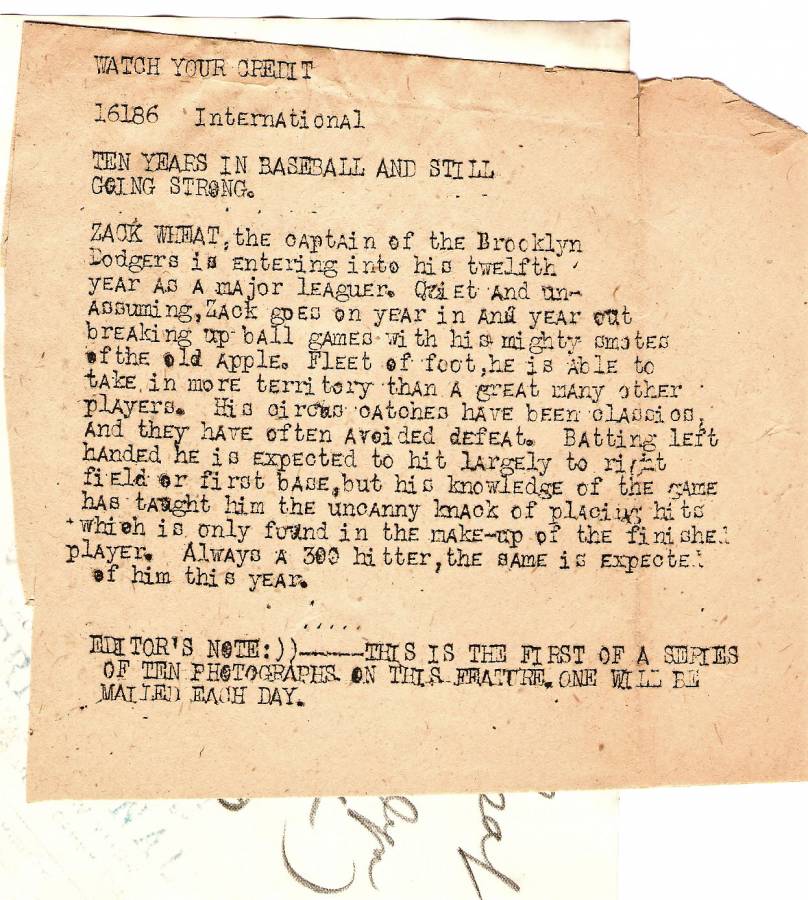 WATCH YOUR CREDIT
16186 International
TEN YEARS IN BASEBALL AND STILL
GOING STRONG.
ZACK WHEAT,the captain of the Brooklyn
Dodgers is entering into his twelfth
year as a major leaguer. Quiet and un-
assuming,Zack goes on year in and year out
breaking up ball games with his mighty smotes
ofthe old apple. Fleet of foot,he is able to
take in more territory than a great many other
players. His circus catches have been classics,
and they have often avoided defeat. Batting left
handed he is expected to hit largely to right
field or first base,but his knowledge of the game
has taught him the uncanny knack of placing hits
which is only found in the make-up of the finished
player. Always a 300 hitter,the same is expected
of him this year.
.....
EDITOR'S NOTE:))-----THIS IS THE FIRST OF A SERIES
OF TEN PHOTOGRAPHS ON THIS FEATURE.ONE WILL BE
MAILED EACH DAY.